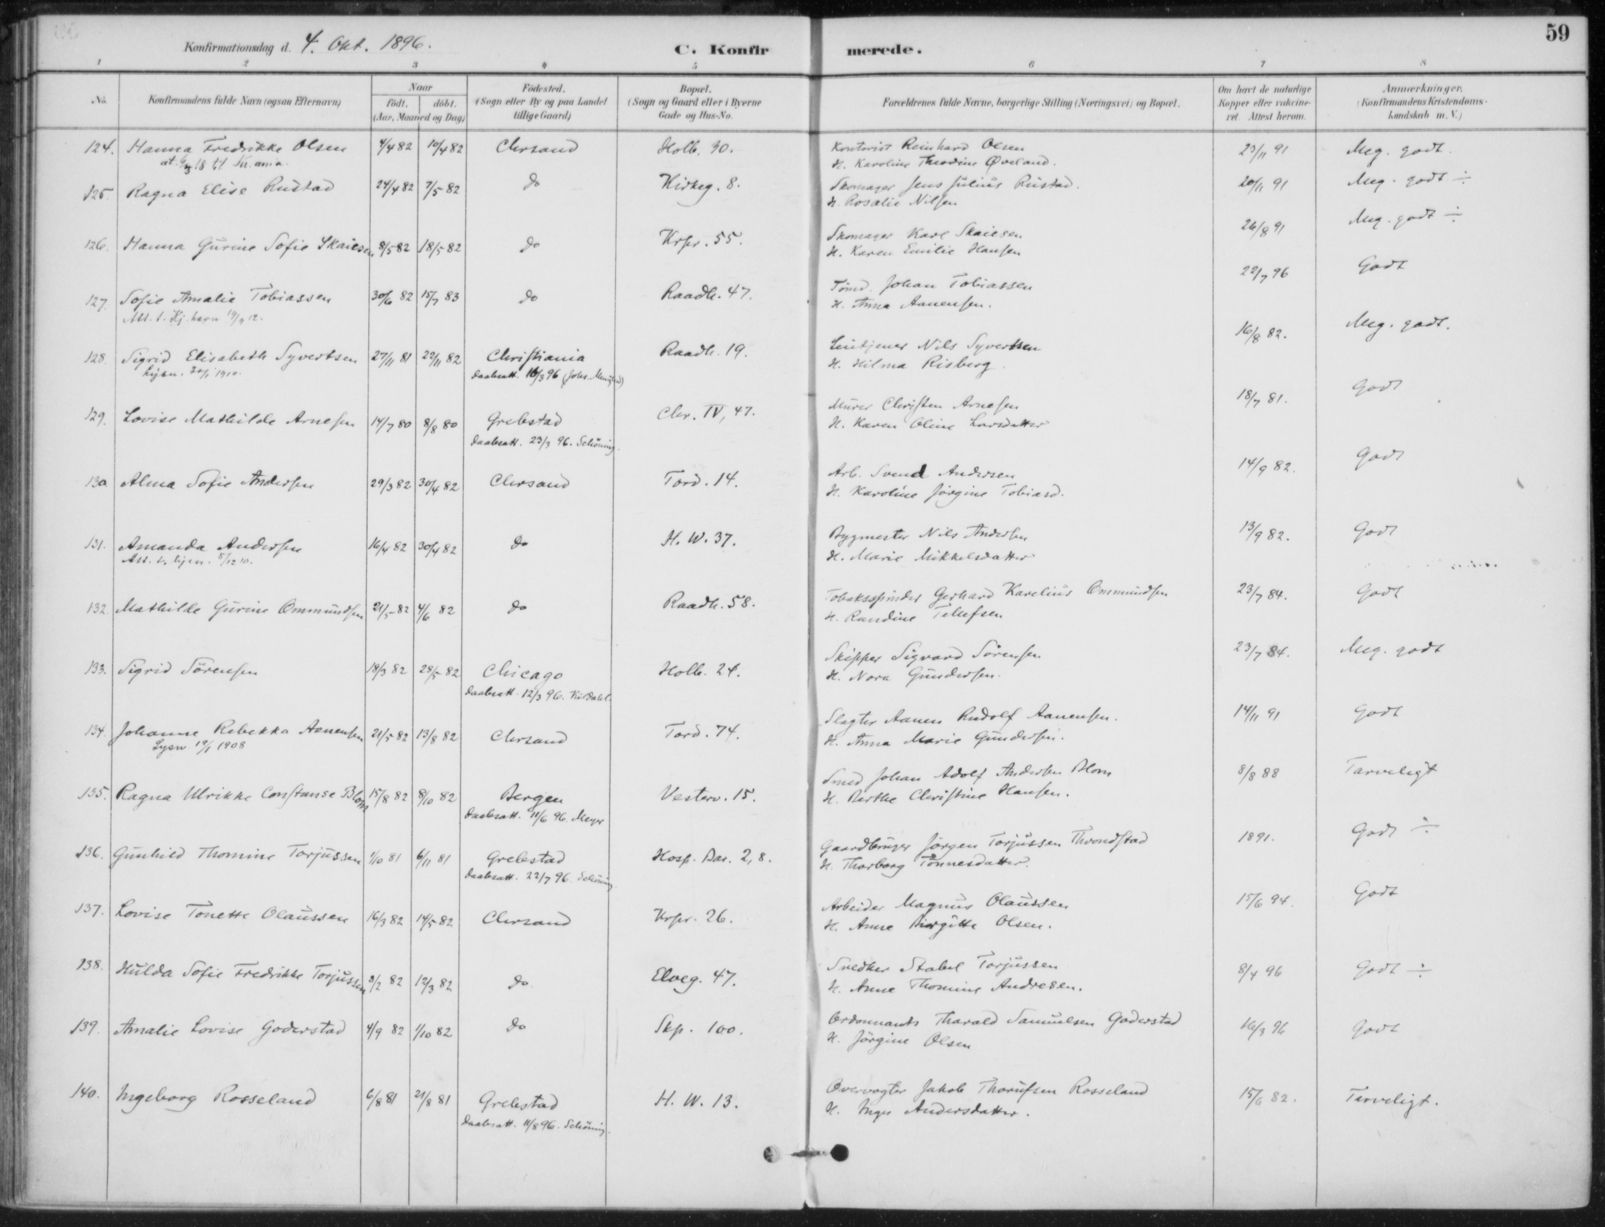 59
Konfirmationsdag d. 4. Okt. 1896.
C. Konfirmerede.
1 2 3 4 5 6 7 8
No.
Konfirmandens fulde Navn (ogsaa Efternavn)
Naar
født. døbt.
(Aar, Maaned og Dag)
Fødested.
(Sogn eller By og paa Landet
tillige Gaard)
Bopæl.
(Sogn og Gaard eller i Byerne
Gade og Hus-No.
Forældrenes fulde Navne, borgerlige Stilling (Næringsvei) og Bopæl.
Om havt de naturlige
Kopper eller vaccine-
ret. Attest herom.
Anmærkninger.
(Konfirmandens Kristendoms-
kundskab m. V.)
124. Hanna Fredrikke Olsen 4/4 82 10/4 82 Chrsand Holb. 30. Kontorist Reinhard Olsen 23/11 91 Meg. godt.
H. Karoline Theodine Øveland.
125. Ragna Elise Rustad 24/4 82 7/5 82 do Kirkeg. 8. Skomager Jens Julius Rustad. 20/11 91 Meg. godt ÷
H. Rosalie Nilsen
126. Hanna Gurine Sofie Skaiesen 8/5 82 18/5 82 do Krpr. 55. Skomager Karl Skaiesen 26/8 91 Meg. godt ÷
H. Karen Emilie Hansen
127. Sofie Amalie Tobiassen 30/6 82 15/7 83 do Raadh. 47. Tømd. Johan Tobiassen 22/7 96 Godt
H. Anna Aanensen.
128. Sigrid Elisabeth Syvertsen 27/11 81 22/11 82 Christiania Raadh. 19. Nils Syvertsen 16/8 82. Meg. godt.
Daabsatt. 16/3 96 H. Hilma Risberg.
129. Lovise Mathilde Arnesen 14/7 80 8/8 80 Grebstad Chr. IV, 47. Murer Christen Arnesen 18/7 81. Godt
Daabsatt. 23/3 96. Schöning. H. Karen Oline Larsdatter
130 Alma Sofie Andersen 29/3 82 30/4 82 Chrsand Tord. 14. Arb. Svend Andersen 14/9 82. Godt
H. Karoline Jörgine Tobiasd.
131. Amanda Andersen 16/4 82 30/4 82 do H. W. 37. Bygmester Nils Andersen 13/9 82. Godt
H. Marie Mikkelsdatter
132. Mathilde Gurine Ommundsen 21/5 82 4/6 82 do Raadh. 58. Tobaksspinder Gerhard Karelius Ommundsen 23/7 84. Godt
H. Randine Tellefsen
133. Sigrid Sörensen 18/3 82 28/5 82 Chicago Holb. 24. Skipper Sigvard Sörensen 23/7 84. Meg. godt
Daabsatt. 12/3 96. H. Nora Gundersen.
134. Johanne Rebekka Aanensen 21/5 82 13/8 82 Chrsand Tord. 74. Slagter Aanen Rudolf Aanensen. 14/11 91 Godt
H. Anna Marie Gundersen.
135. Ragna Ulrikke Constanse Blom 15/8 82 8/10 82 Bergen Vesterv. 15. Smed Johan Adolf Andersen Blom 8/8 88 Tarveligt
Daabsatt. 11/6 96. Meyer H. Berthe Christine Hansen.
136. Gunhild Thomine Torjussen 1/10 81 6/11 81 Grebstad Hosp. Bar. 2, 8. Gaardbruger Jörgen Torjussen Throndstad 1891. Godt ÷
Daabsatt. 22/7 96. Schöning H. Thorborg Tönnesdatter.
137. Lovise Tonette Olaussen 16/3 82 14/5 82 Chrsand Krpr. 26. Arbeider Magnus Olaussen 15/6 94. Godt
H. Anne Birgitte Olsen.
138. Hulda Sofie Fredrikke Torjussen 3/2 82 12/3 82 do Elveg. 47. Snedker Stabel Torjussen 8/4 96 Godt ÷
H. Anne Thomine Andresen.
139. Amalie Lovise Goderstad 4/9 82 1/10 82 do Skp. 100. Ordonnants Tharald Samuelsen Goderstad 16/3 96 Godt
H. Jörgine Olsen
140. Ingeborg Rosseland 6/8 81 21/8 81 Grebstad H. W. 13. Opvarter Jakob Rosseland 15/6 82. Tarveligt.
Daabsatt. 11/8 96. Schöning. H. Inger Andersdatter.